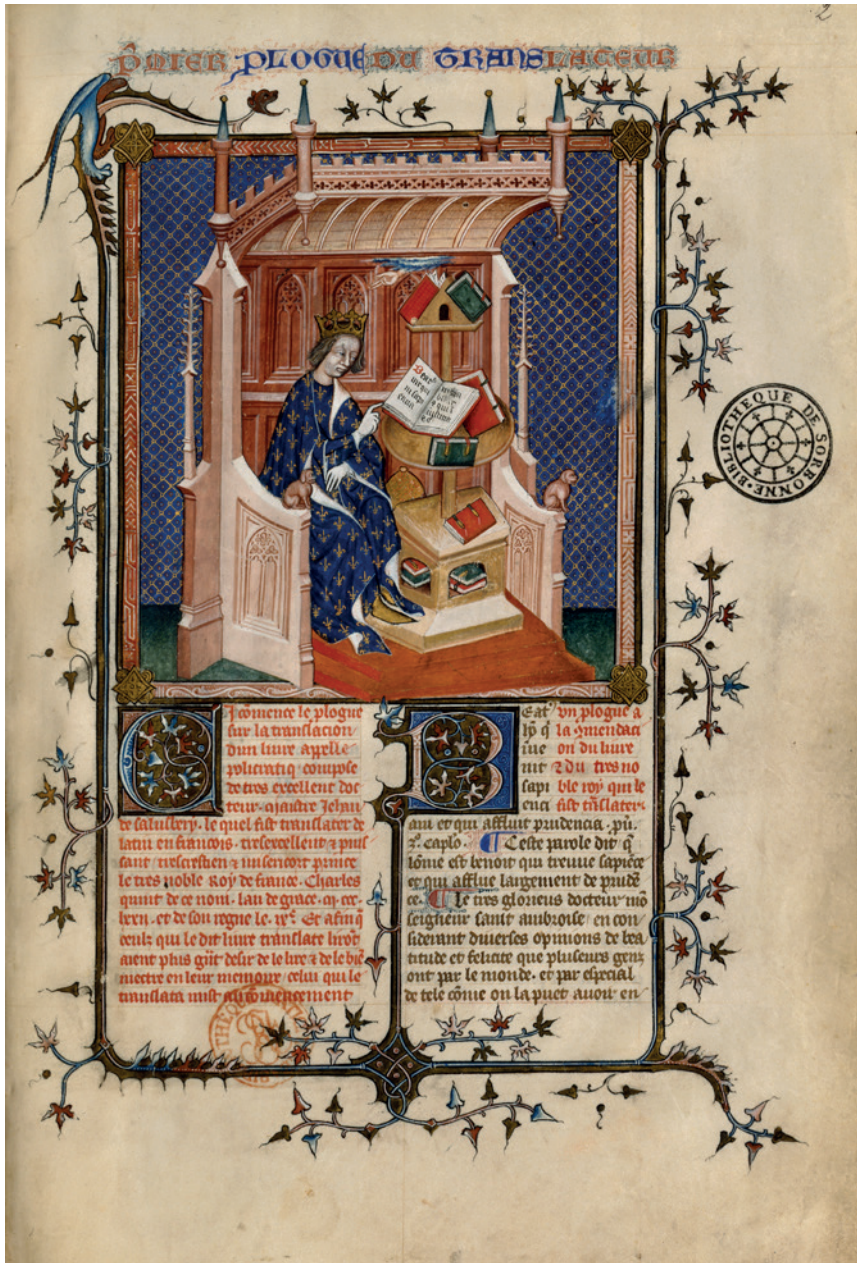 2
P̄MIER PLOGUE DU TRANSLATEUR
Ci cōmence le plogue
sur la translacion
dun liure appelle
policratiq compose
de tres excellent doc
teur. maistre Jehan
de salusbery. le quel fist translater de
latin en francois. tresexcellent & puis
sant trescrestien & misericort prince
le tres noble Roy de france. Charles
quint de ce nom. lan de grace. m. ccc.
lxxii. et de son regne le. ixᵉ. Et afin q̄
ceulz qui le dit liure translate liront
aient plus gn̄t desir de le lire & de le biē
mectre en leur memoire celui qui le
translata mist au cōmencement
Beatꝰ vn plogue a
hō q̄ la ꝯmendaci
iue on du liure
nit & du tres no
sapi ble roy qui le
enci fist trāslater.
am et qui affluit prudencia. pū.
caplo. Ceste parole dit q̄
lōme est benoit qui treuue sapiēce
et qui afflue largement de prudē
ce. le tres glorieus docteur mō
seigneur saint ambroise en con
siderant diuerses opinions de bea
titude et felicite que plusieurs genz
ont par le monde. et par especial
de tele cōme on la puet auoir en
BIBLIOTHEQUE DE SORBONNE